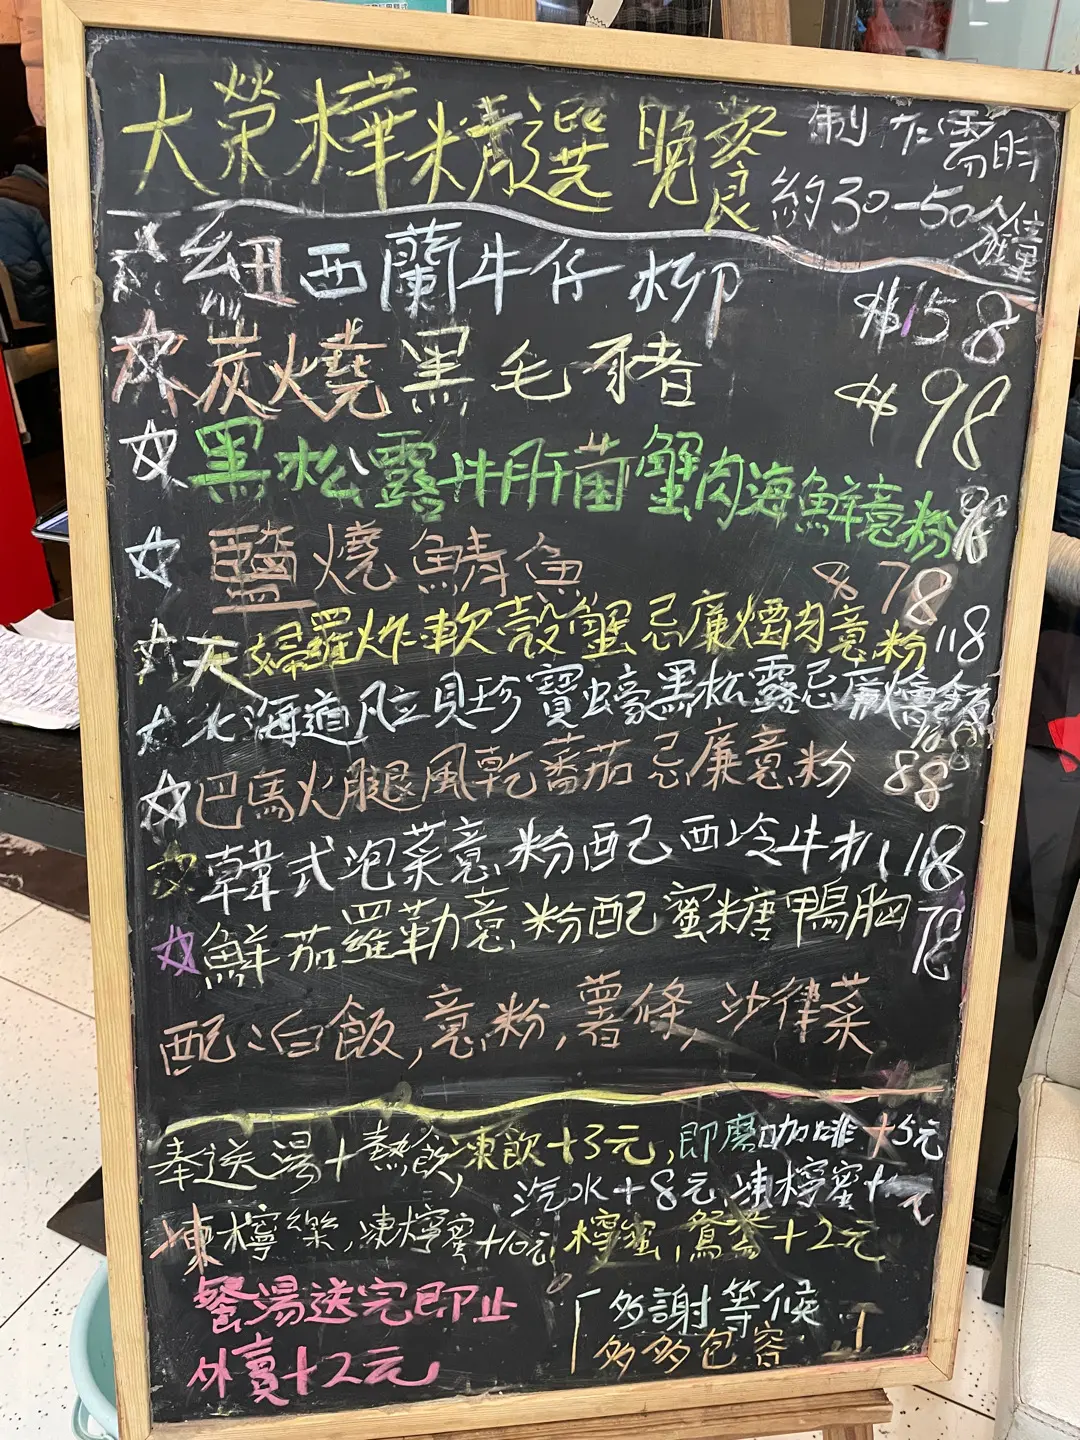 大榮華精選 晚餐
制作需時
約30-50分鐘
紐西蘭牛仔柳 $158
炭燒黑毛豬 $98
黑松露牛肝菌蟹肉海鮮意粉
鹽燒鯖魚 $78
天婦羅炸軟殼蟹忌廉煙肉意粉 118
北海道凡立貝珍寶蠔黑松露忌廉
巴馬火腿風乾蕃茄忌廉意粉 88
韓式泡菜意粉配西冷牛扒 118
鮮茄羅勒意粉配蜜糖鴨胸 78
配:白飯,意粉,薯條,沙律菜
奉送湯+熱飲,凍飲+3元,即磨咖啡+5元
汽水+8元,凍檸蜜+
凍檸樂,凍檸蜜+10元,檸蜜,鴛鴦+2元
餐湯送完即止
外賣+2元
「多謝等候
多多包容」